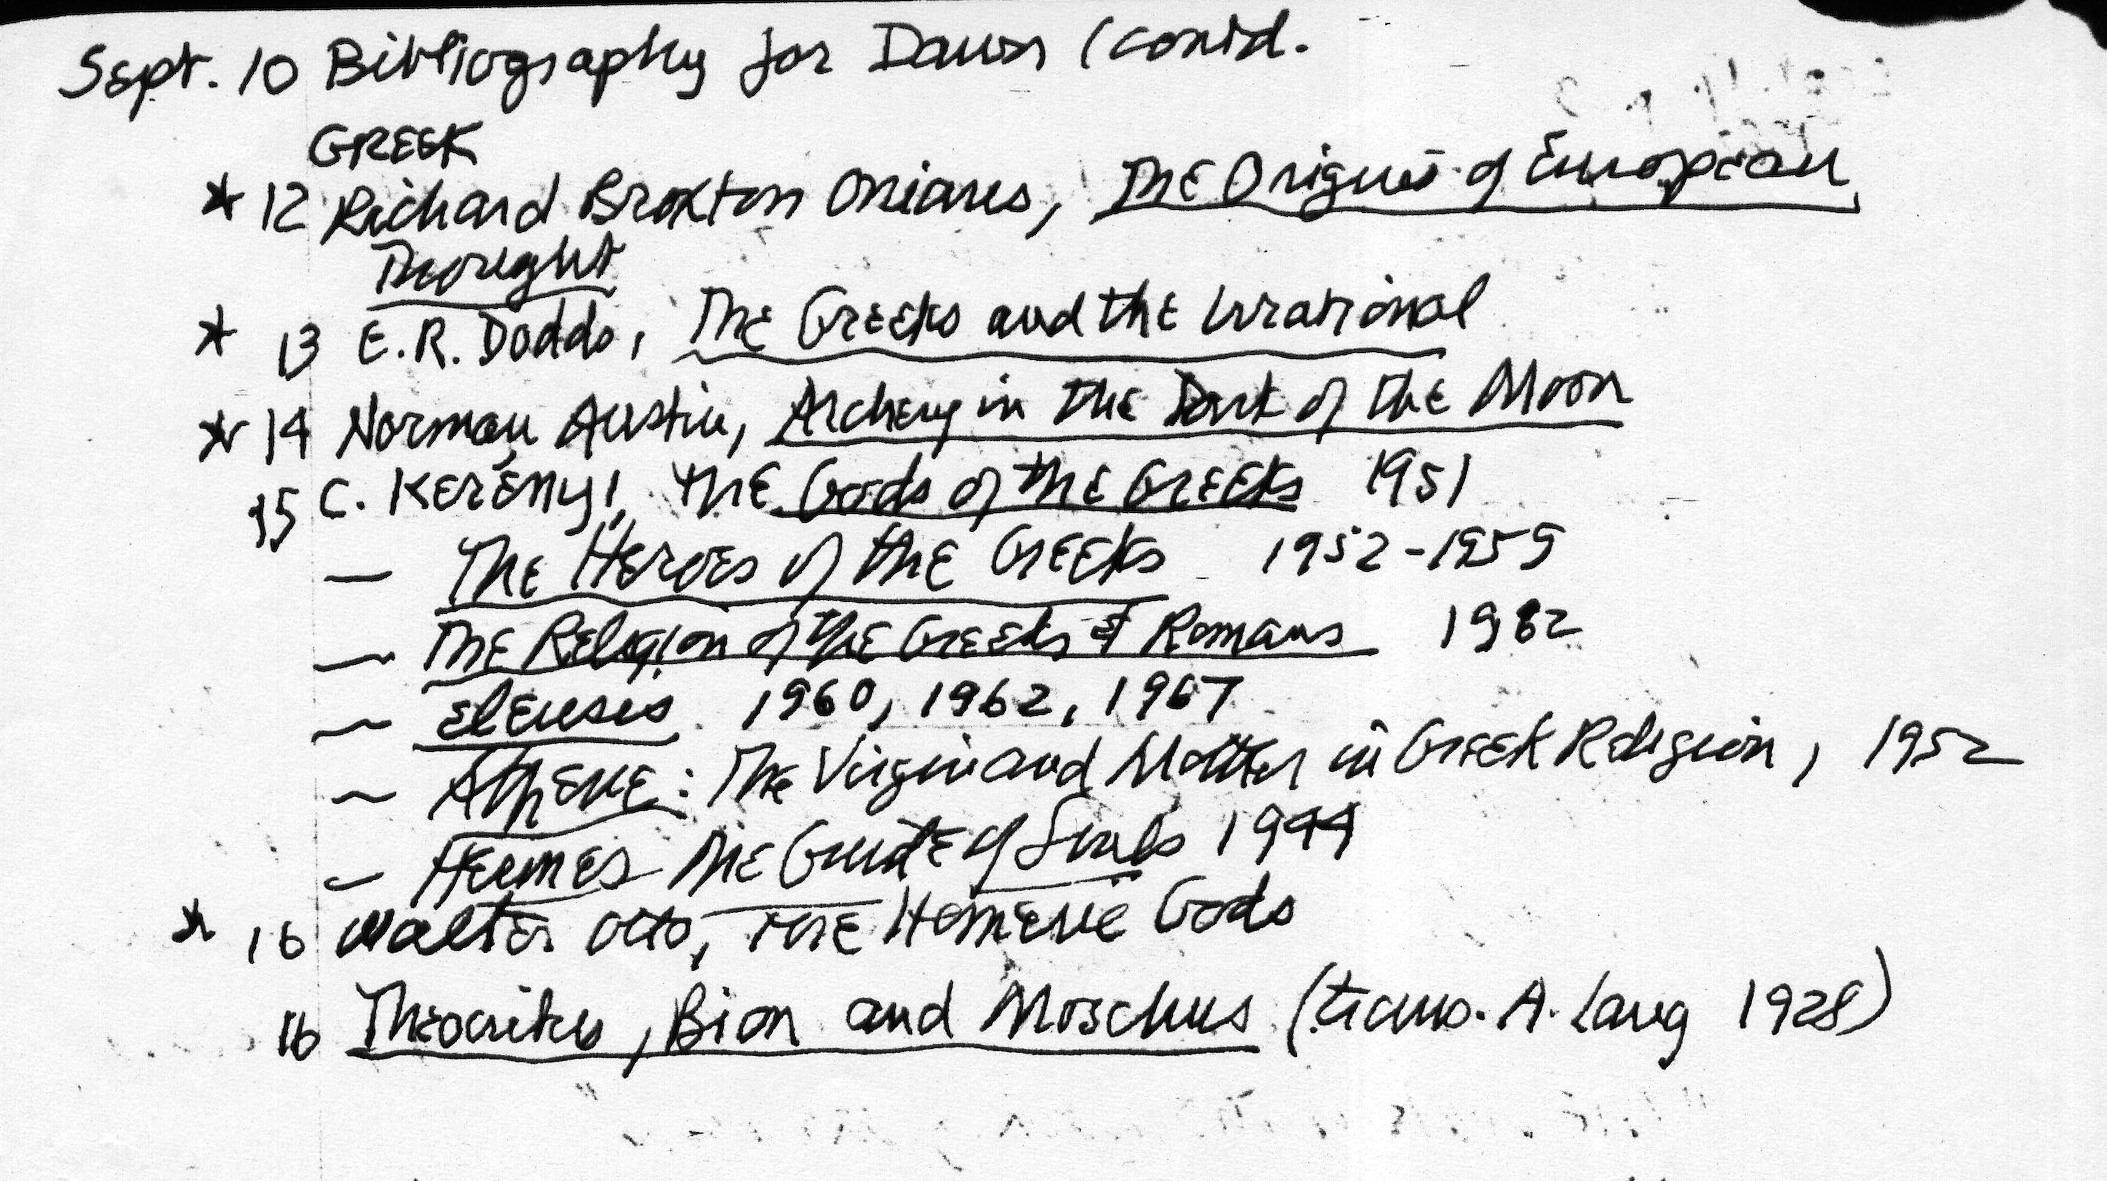 Sept. 10 Bibliography for Dawn (contd.
GREEK
* 12 Richard Broxton Onians, The Origins of European
Thought
* 13 E.R. Dodds, The Greeks and the Irrational
* 14 Norman Austin, Archery in the Dark of the Moon
15 C. Kerényi, The Gods of the Greeks 1951
— The Heroes of the Greeks 1952-1959
— The Religion of the Greeks & Romans 1962
— Eleusis 1960, 1962, 1967
— Athene: The Virgin and Mother in Greek Religion, 1952
— Hermes The Guide of Souls 1944
* 16 Walter Otto, The Homeric Gods
16 Theocritus, Bion and Moschus (trans. A. Lang 1928)